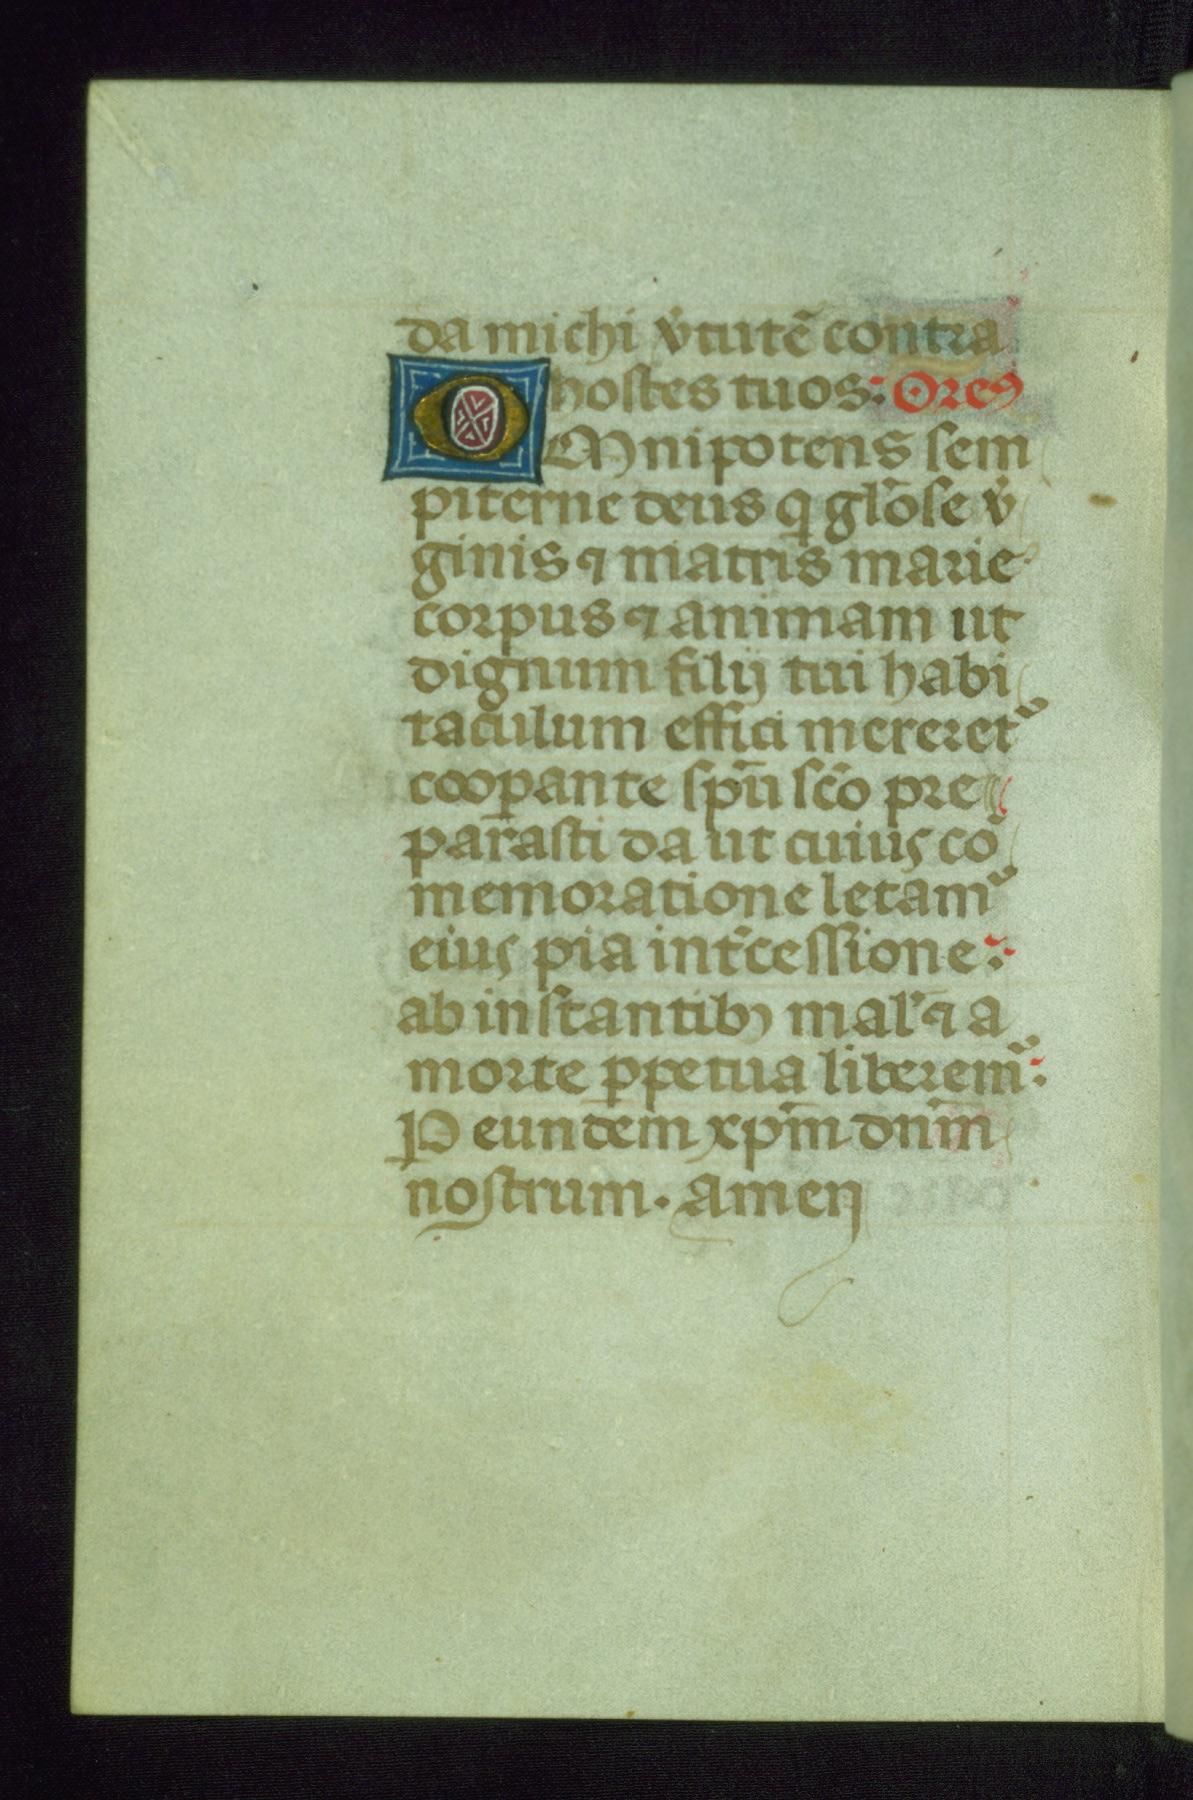 da michi v̾tutẽ contra
hostes tuos: Oremꝰ
OMnipotens sem
piterne deus q̇ gl̃ose v̾
ginis ⁊ matris marie
corpus ⁊ animam ut
dignum filij tui habi
taculum effici mereret᷑
coop̱ante sp̃u sc̃o pre
parasti da ut cuius cõ
memoratione letam᷑
eius pia int̾cessione:
ab instantibꝫ mal̾ ⁊ a
morte ꝑpetua liberem᷑:
P eundem xp̃m dñm
nostrum. Amen